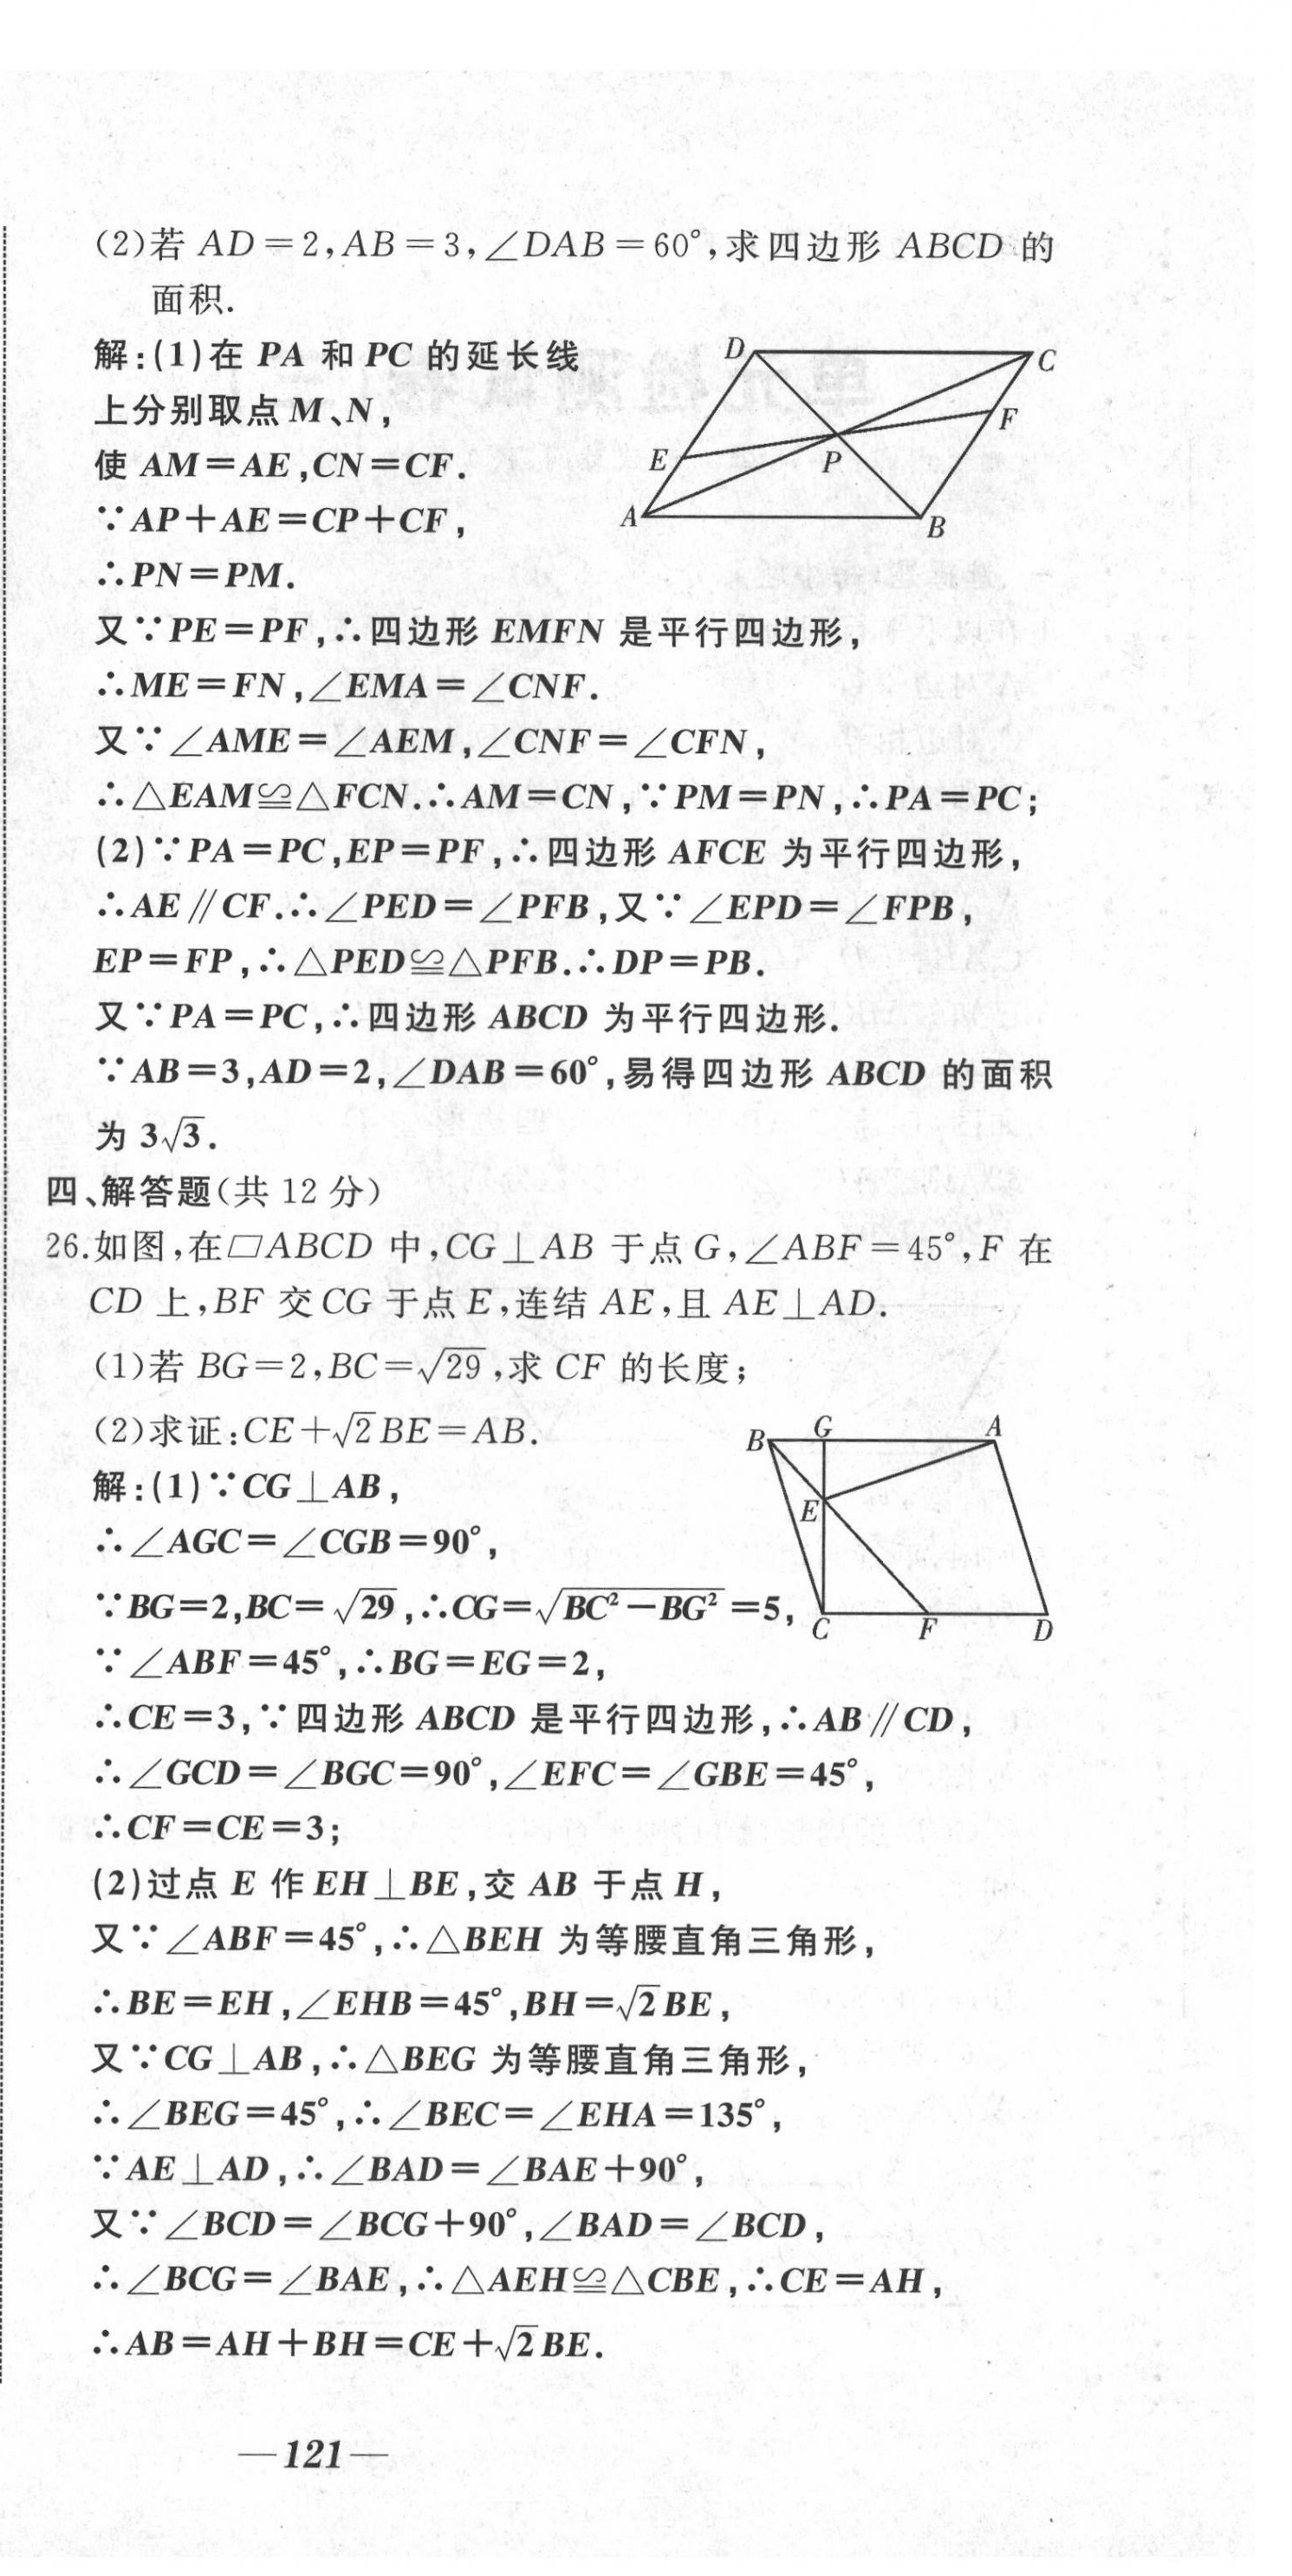 (2)若 AD=2,AB=3,∠DAB=60°,求四边形 ABCD 的
面积.
解:(1)在 PA 和 PC 的延长线
上分别取点 M、N,
使 AM=AE,CN=CF.
∵AP+AE=CP+CF,
∴PN=PM.
又∵PE=PF,∴四边形 EMFN 是平行四边形,
∴ME=FN,∠EMA=∠CNF.
又∵∠AME=∠AEM,∠CNF=∠CFN,
∴△EAM≌△FCN.∴AM=CN,∵PM=PN,∴PA=PC;
(2)∵PA=PC,EP=PF,∴四边形 AFCE 为平行四边形,
∴AE∥CF.∴∠PED=∠PFB,又∵∠EPD=∠FPB,
EP=FP,∴△PED≌△PFB.∴DP=PB.
又∵PA=PC,∴四边形 ABCD 为平行四边形.
∵AB=3,AD=2,∠DAB=60°,易得四边形 ABCD 的面积
为 3√3.
D
C
F
E
P
A
B
四、解答题(共 12 分)
26.如图,在▱ABCD 中,CG⊥AB 于点 G,∠ABF=45°,F 在
CD 上,BF 交 CG 于点 E,连结 AE,且 AE⊥AD.
(1)若 BG=2,BC=√29,求 CF 的长度;
(2)求证:CE+√2BE=AB.
解:(1)∵CG⊥AB,
∴∠AGC=∠CGB=90°,
∵BG=2,BC=√29,∴CG=√(BC²-BG²)=5,
∵∠ABF=45°,∴BG=EG=2,
∴CE=3,∵四边形 ABCD 是平行四边形,∴AB∥CD,
∴∠GCD=∠BGC=90°,∠EFC=∠GBE=45°,
∴CF=CE=3;
B
G
A
E
C
F
D
(2)过点 E 作 EH⊥BE,交 AB 于点 H,
又∵∠ABF=45°,∴△BEH 为等腰直角三角形,
∴BE=EH,∠EHB=45°,BH=√2BE,
又∵CG⊥AB,∴△BEG 为等腰直角三角形,
∴∠BEG=45°,∴∠BEC=∠EHA=135°,
∵AE⊥AD,∴∠BAD=∠BAE+90°,
又∵∠BCD=∠BCG+90°,∠BAD=∠BCD,
∴∠BCG=∠BAE,∴△AEH≌△CBE,∴CE=AH,
∴AB=AH+BH=CE+√2BE.
—121—